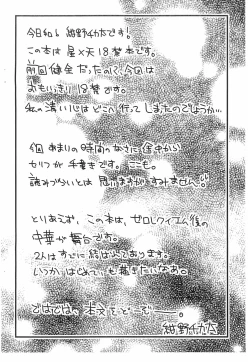 今日和！紺野々々です！
この本は星×天18禁本です。
前回健全だったので、今回は
おもいっきり18禁です。
私の清い心はどこへ行ってしまったのでしょうか…
今回あまりの時間のなさに途中から
セリフが手書きです。ここも。
読みづらいとは思いますがすみません…
とりあえず、この本は、ゼロレクイエム後の
中華が舞台です。
2人はすでに結ばれております。
いつか、はじめても書きたいなあ。
ではでは、本文をどーぞー。